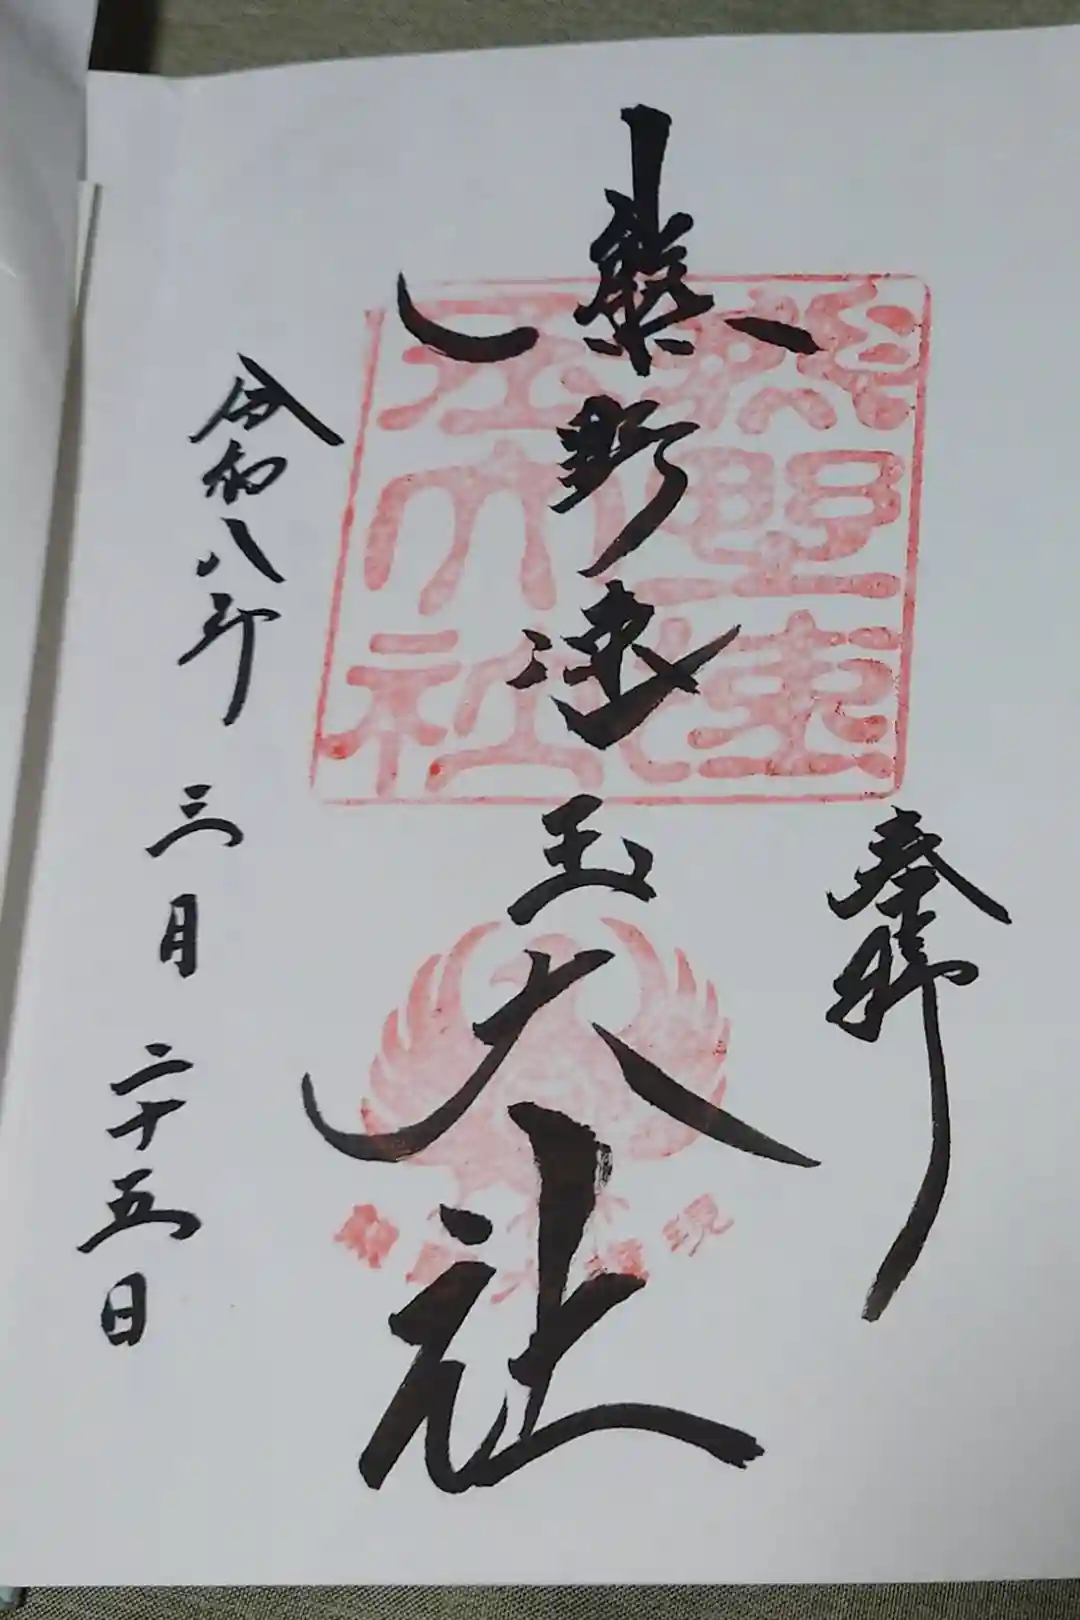 奉拝
熊野速玉大社
熊野速
玉大社
令和八年三月二十五日